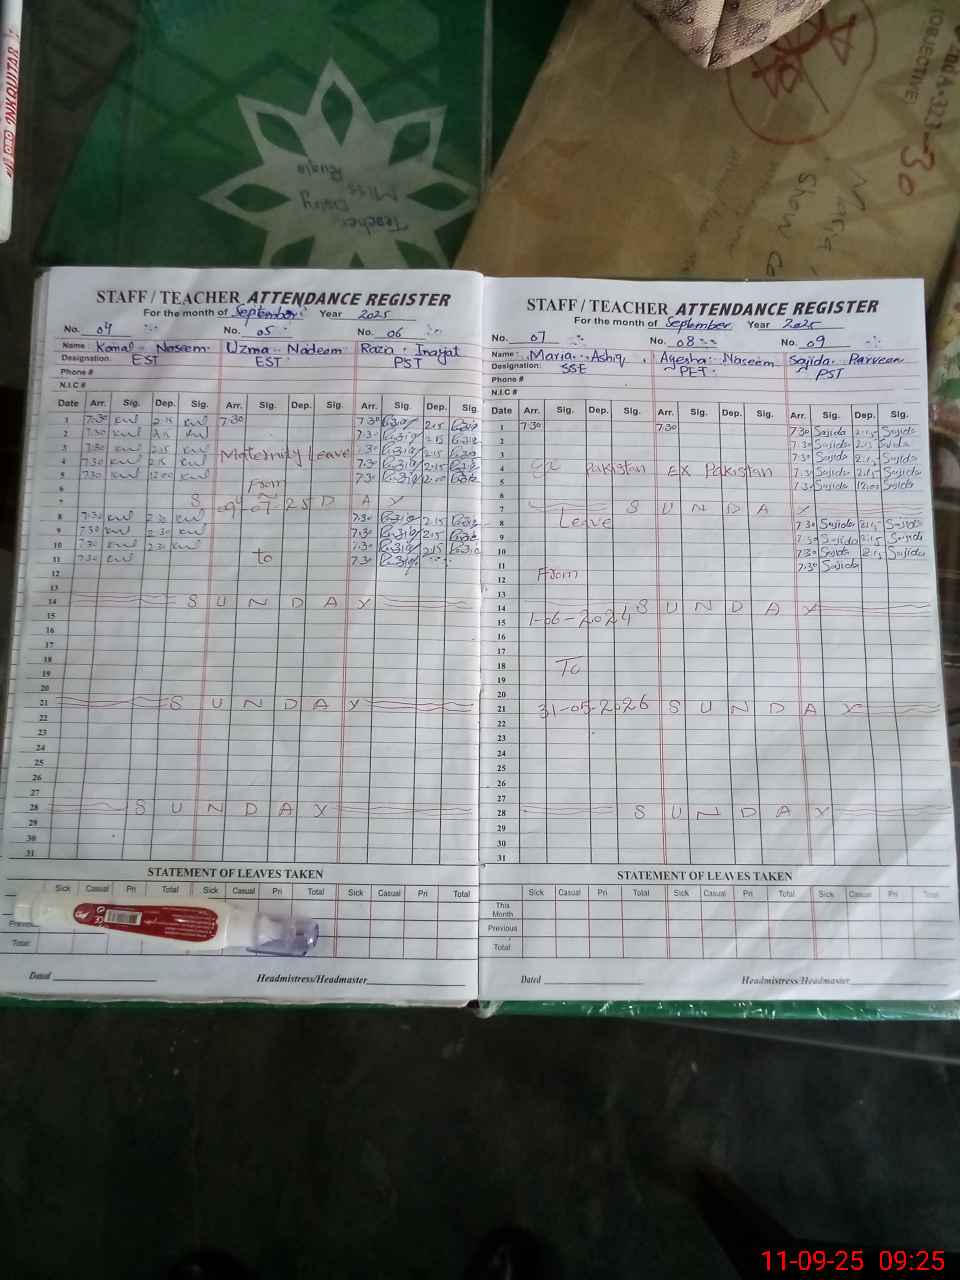 (OBJECTIVE)
30
Show Co
Teacher
Diary
Miss
STAFF / TEACHER ATTENDANCE REGISTER
For the month of September Year 2025
No. 04 No. 05 No. 06
Name Komal Naseem Uzma Nadeem Razia Inayat
Designation: EST EST PST
Phone #
N.I.C #
Date Arr. Sig. Dep. Sig. Arr. Sig. Dep. Sig. Arr. Sig. Dep. Sig.
1 7:30 2:15 7:30 7:30 2:15
2 7:30 2:15 7:30 2:15
3 7:30 2:15 Maternity Leave 7:30 2:15
4 7:30 2:15 7:30 2:15
5 7:30 12:00 From 7:30 12:00
6
7 S 09-07-25 D A Y
8 7:30 2:30 7:30 2:15
9 7:30 2:30 7:30 2:15
10 7:30 2:30 7:30 2:15
11 7:30 to 7:30
12
13
14 S U N D A Y
15
16
17
18
19
20
21 S U N D A Y
22
23
24
25
26
27
28 S U N D A Y
29
30
31
STATEMENT OF LEAVES TAKEN
Sick Casual Pri Total Sick Casual Pri Total Sick Casual Pri Total
Total
Dated Headmistress/Headmaster
STAFF / TEACHER ATTENDANCE REGISTER
For the month of September Year 2025
No. 07 No. 08 No. 09
Name: Maria Ashiq Ayesha Naseem Sajida Parveen
Designation: SSE PET PST
Phone #
N.I.C #
Date Arr. Sig. Dep. Sig. Arr. Sig. Dep. Sig. Arr. Sig. Dep. Sig.
1 7:30 7:30 7:30 Sajida 2:15 Sajida
2 7:30 Sajida 2:15 Sajida
3 7:30 Sajida 2:15 Sajida
4 Ex Pakistan Ex Pakistan 7:30 Sajida 2:15 Sajida
5 7:30 Sajida 12:00 Sajida
6
7 S U N D A Y
8 Leave 7:30 Sajida 2:15 Sajida
9 7:30 Sajida 2:15 Sajida
10 7:30 Sajida 2:15 Sajida
11 7:30 Sajida
12 From
13
14 S U N D A Y
15 1-06-2024
16
17
18 To
19
20
21 31-05-2026 S U N D A Y
22
23
24
25
26
27
28 S U N D A Y
29
30
31
STATEMENT OF LEAVES TAKEN
Sick Casual Pri Total Sick Casual Pri Total Sick Casual Pri Total
This Month
Previous
Total
Dated Headmistress/Headmaster
11-09-25 09:25